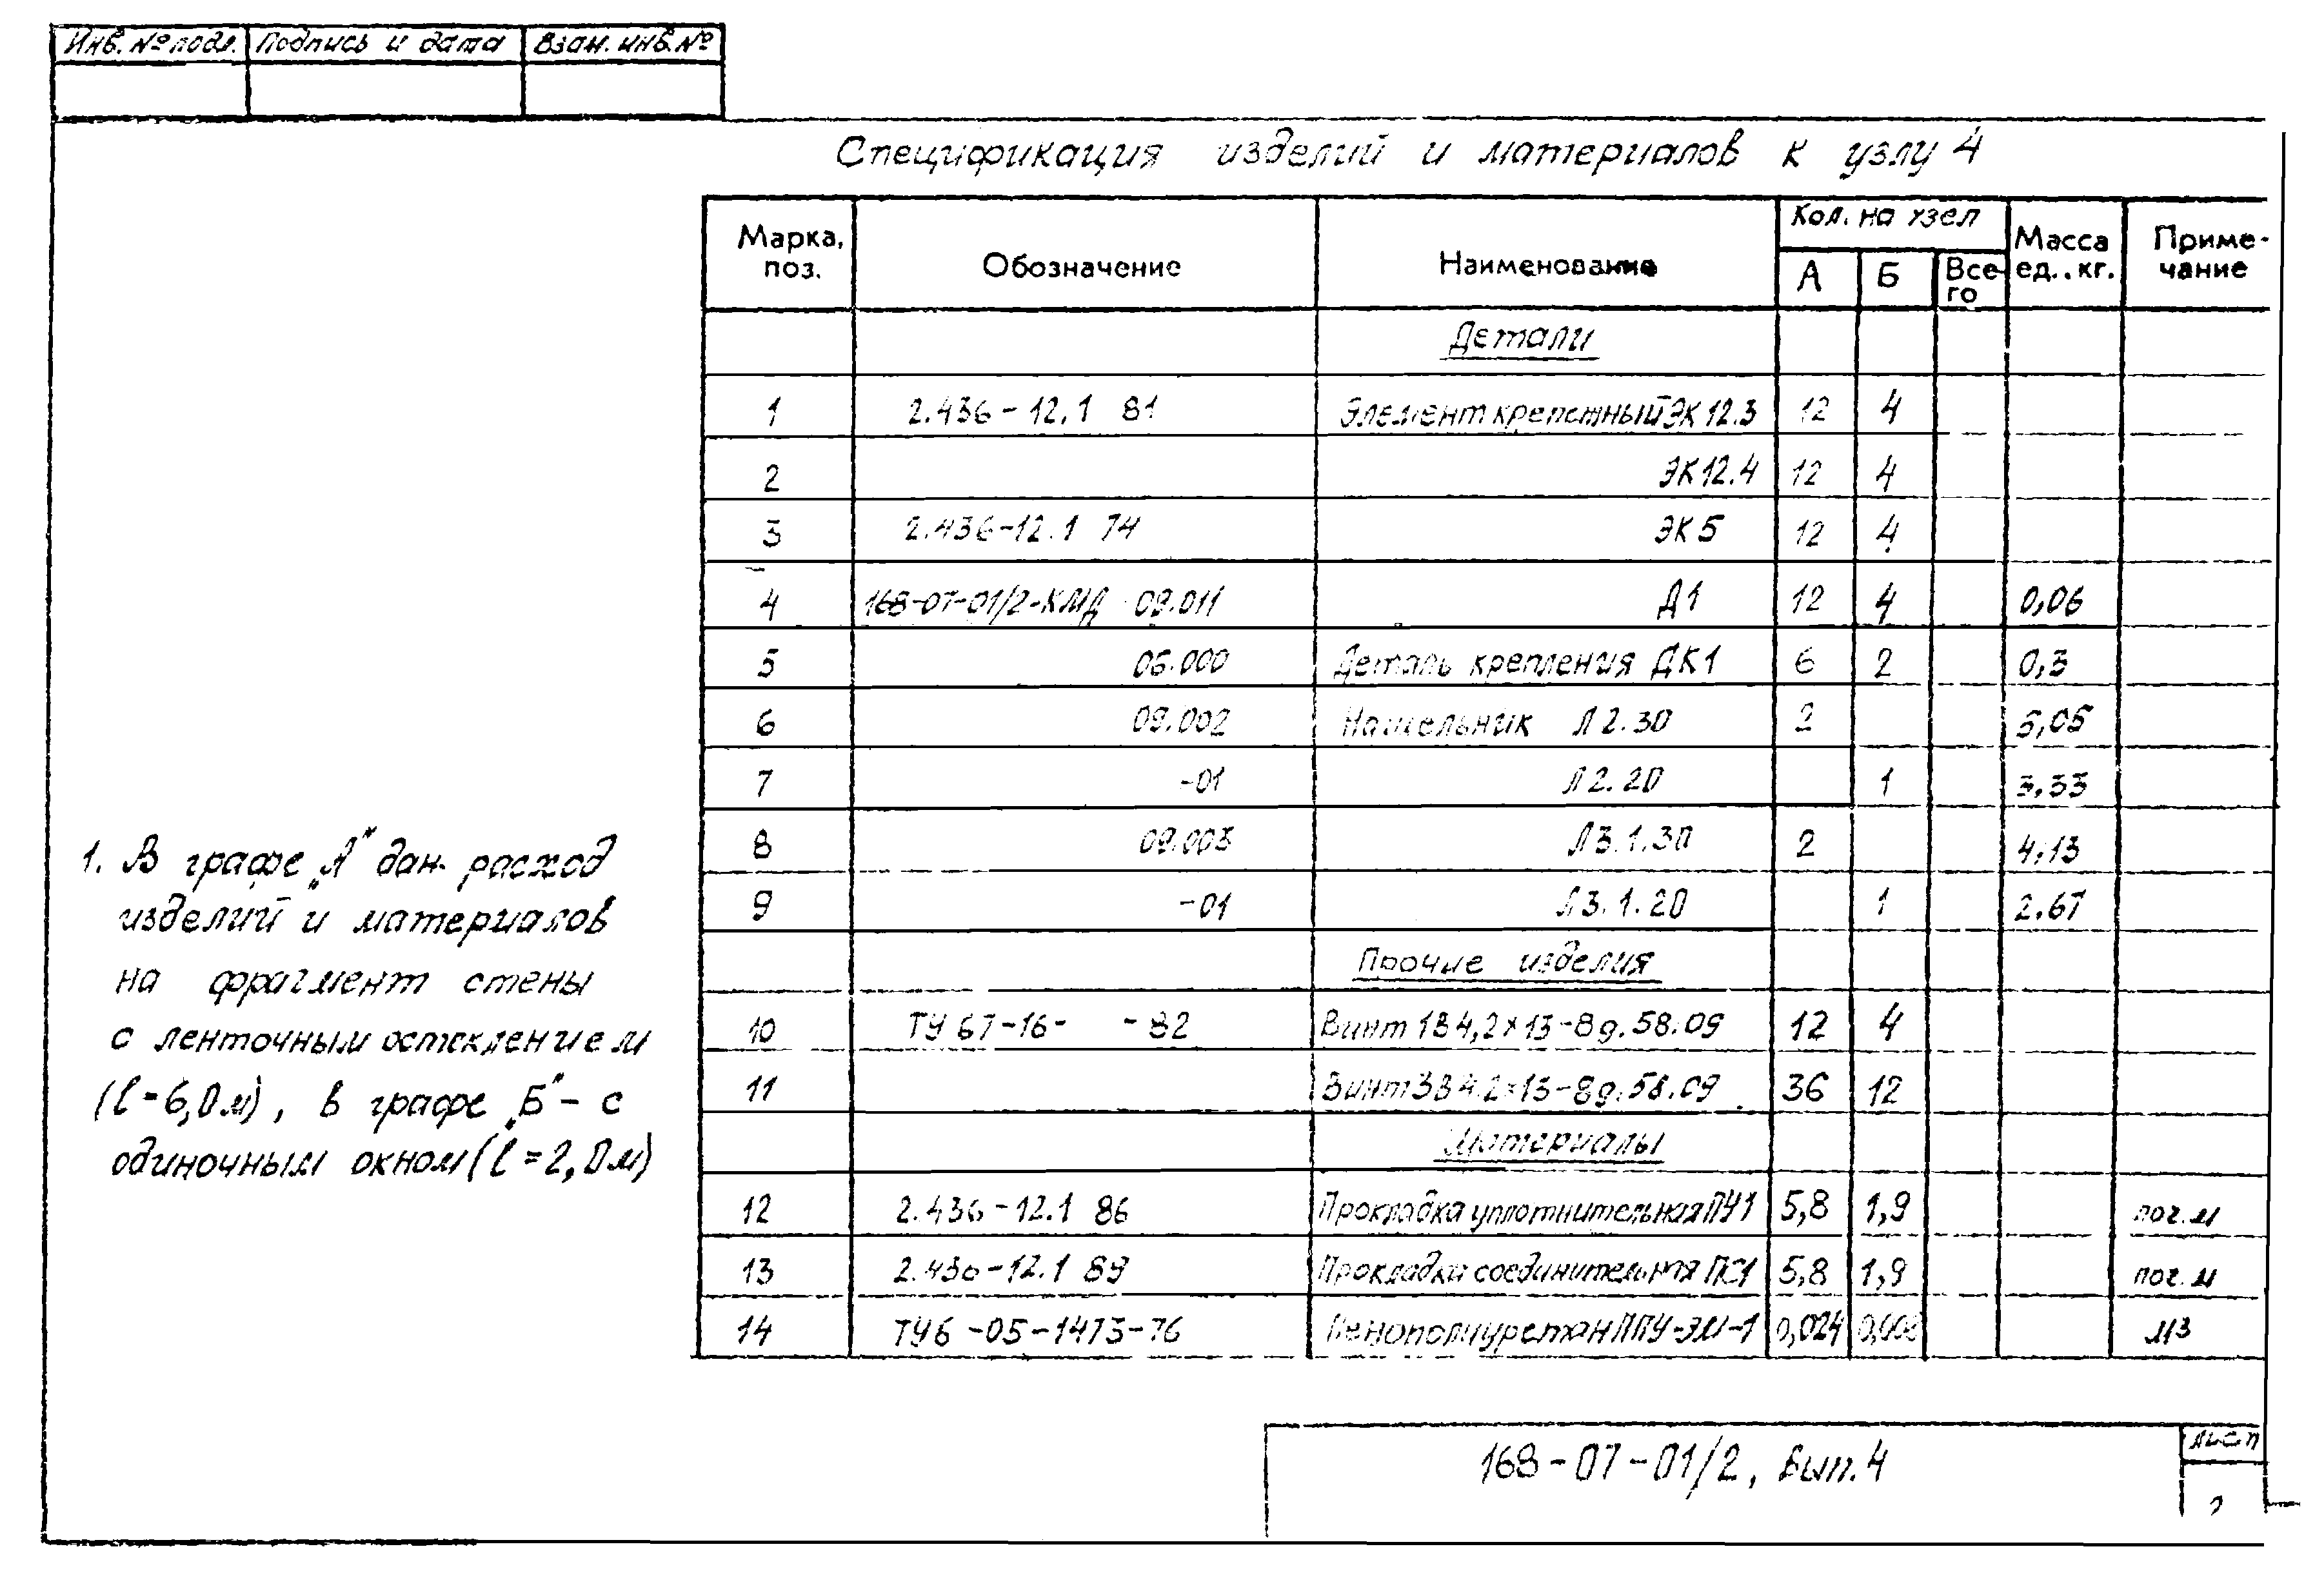 Инв. № подл. Подпись и дата Взам. инв. №
Спецификация изделий и материалов к узлу 4
Марка, поз. Обозначение Наименование Кол. на узел А Б Всего Масса ед., кг. Примечание
Детали
1 2.436-12.1 81 Элемент крепежный ЭК 12.3 12 4
2 ЭК12.4 12 4
3 2.436-12.1 74 ЭК5 12 4
4 168-07-01/2-КМД 09.011 Д1 12 4 0,06
5 06.000 Деталь крепления ДК1 6 2 0,3
6 09.002 Нащельник Л2.30 2 5,05
7 -01 Л2.20 1 3,33
8 09.003 Л3.1.30 2 4,13
9 -01 Л3.1.20 1 2,67
Прочие изделия
10 ТУ 67-16- -82 Винт 1В4,2×13-8д.58.09 12 4
11 Винт 3В4.2×13-8д.58.09 36 12
Материалы
12 2.436-12.1 86 Прокладка уплотнительная ПУ1 5,8 1,9 пог.м
13 2.436-12.1 89 Прокладка соединительная ПС1 5,8 1,9 пог.м
14 ТУ6-05-1473-76 Пенополиуретан ППУ-ЭМ-1 0,024 м3
1. В графе „А" дан расход
изделий и материалов
на фрагмент стены
с ленточным остеклением
(l=6,0м), в графе „Б" - с
одиночным окном (l=2,0м)
168-07-01/2, Вып.4
Лист
2